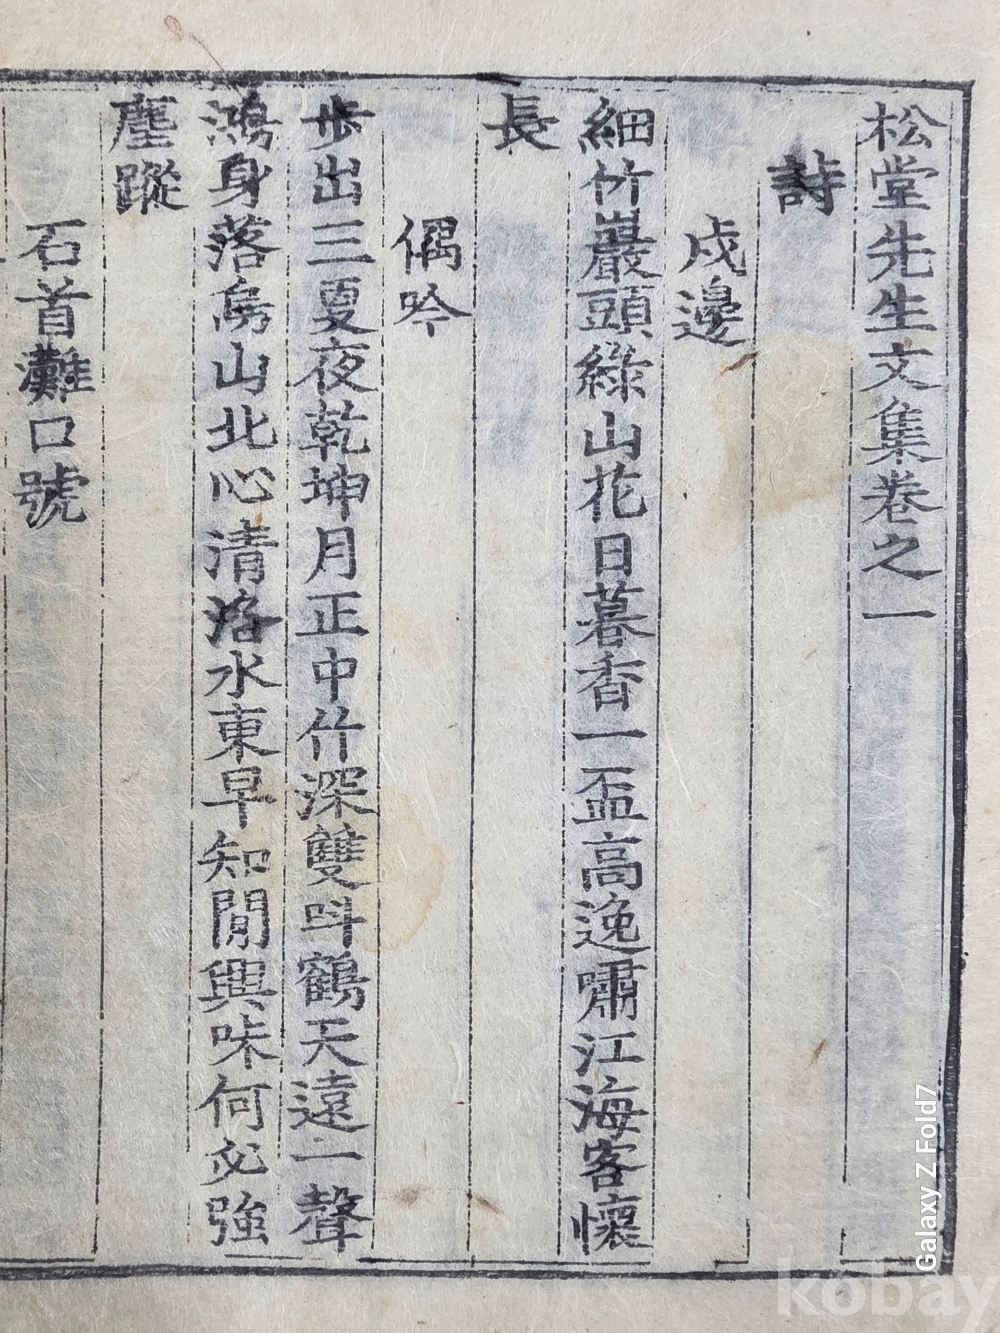 松堂先生文集卷之一
詩
戍邊
細竹巖頭綠山花日暮香一盃高逸嘯江海客懷
長
偶吟
步出三夏夜乾坤月正中竹深雙呌鶴天遠一聲
鴻身落烏山北心清洛水東早知閒興味何必強
塵蹤
石首灘口號
Galaxy Z Fold7
kobay